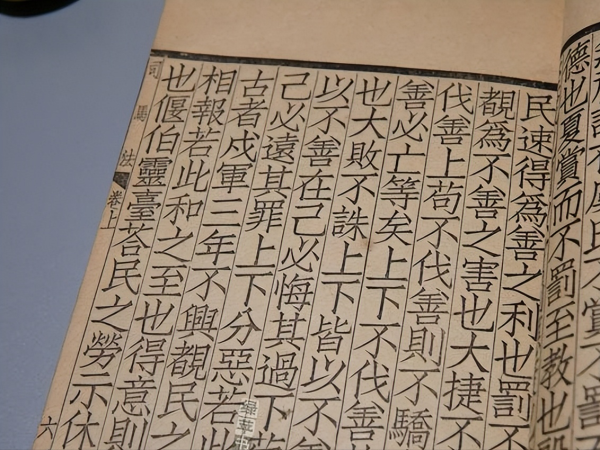 德也夏賞而不罰至教也
民速得為善之利也罰不
覩為不善之害也大捷不
伐善上苟不伐善則不驕
善必亡等矣上下不伐善
也大敗不誅上下皆以不
以不善在己必悔其過下
己必遠其罪上下分惡若
古者戍軍三年不興覩民之
相報若此和之至也得意則
也偃伯靈臺荅民之勞示休
司馬法 卷上 六